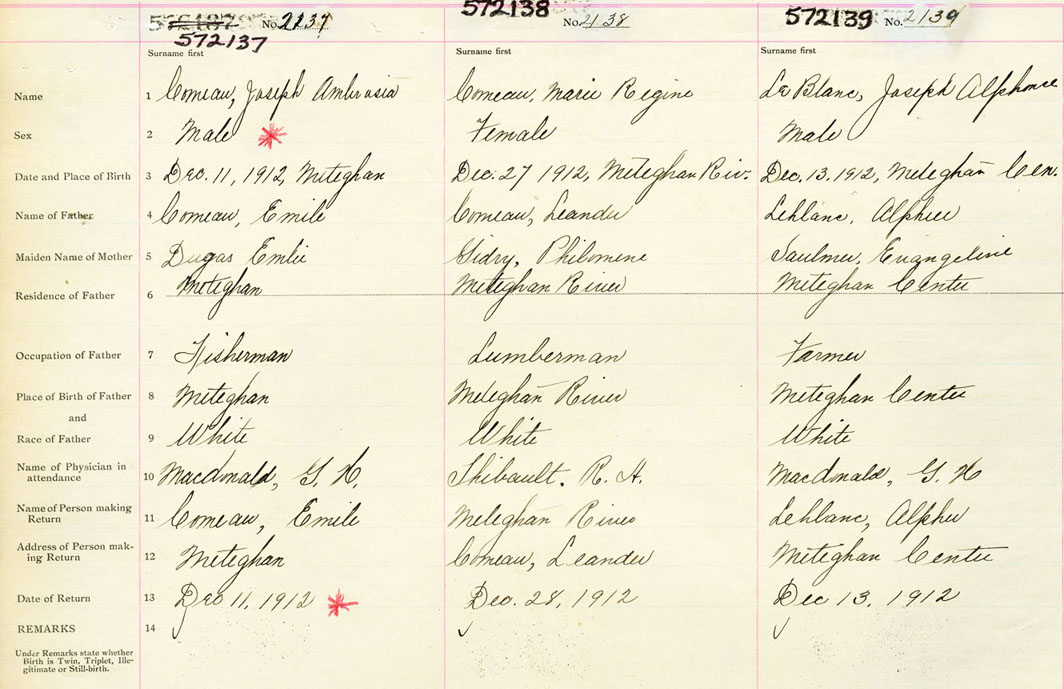 572137 No. 2137 572138 No. 2138 572139 No. 2139
572137
Surname first Surname first Surname first
Name 1 Comeau, Joseph Ambrosia Comeau, Marie Regine Le Blanc, Joseph Alphonce
Sex 2 Male Female Male
Date and Place of Birth 3 Dec. 11, 1912, Meteghan Dec. 27 1912, Meteghan Riv. Dec. 13, 1912, Meteghan Cen.
Name of Father 4 Comeau, Emile Comeau, Leander Leblanc, Alpheu
Maiden Name of Mother 5 Dugas Emlie Gidry, Philomene Saulnier, Evangeline
Residence of Father 6 Meteghan Meteghan River Meteghan Center
Occupation of Father 7 Fisherman Lumberman Farmer
Place of Birth of Father 8 Meteghan Meteghan River Meteghan Center
and
Race of Father 9 White White White
Name of Physician in
attendance 10 Macdonald, G. H. Thibault, R. A. Macdonald, G. H
Name of Person making
Return 11 Comeau, Emile Meteghan River Leblanc, Alpheu
Address of Person mak-
ing Return 12 Meteghan Comeau, Leander Meteghan Center
Date of Return 13 Dec 11, 1912 Dec. 28, 1912 Dec 13, 1912
REMARKS 14
Under Remarks state whether
Birth is Twin, Triplet, Ille-
gitimate or Still-birth.